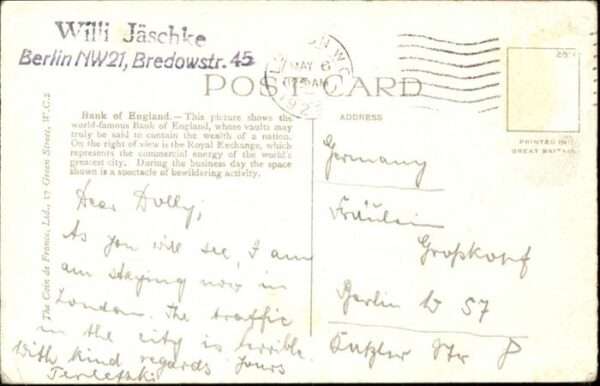 Willi Jäschke
Berlin NW21, Bredowstr. 45
POST CARD
MAY 6
Bank of England.—This picture shows the
world-famous Bank of England, whose vaults may
truly be said to contain the wealth of a nation.
On the right of view is the Royal Exchange, which
represents the commercial energy of the world's
greatest city. During the business day the space
shown is a spectacle of bewildering activity.
The Coin de France, Ltd., 17 Green Street, W.C.2
Dear Dolly,
As you will see, I am
am staying now in
London. The traffic
in the city is terrible.
With kind regards Yours
ADDRESS
PRINTED IN
GREAT BRITAIN
Germany
Fräulein
Großkopf
Berlin W 57
Str